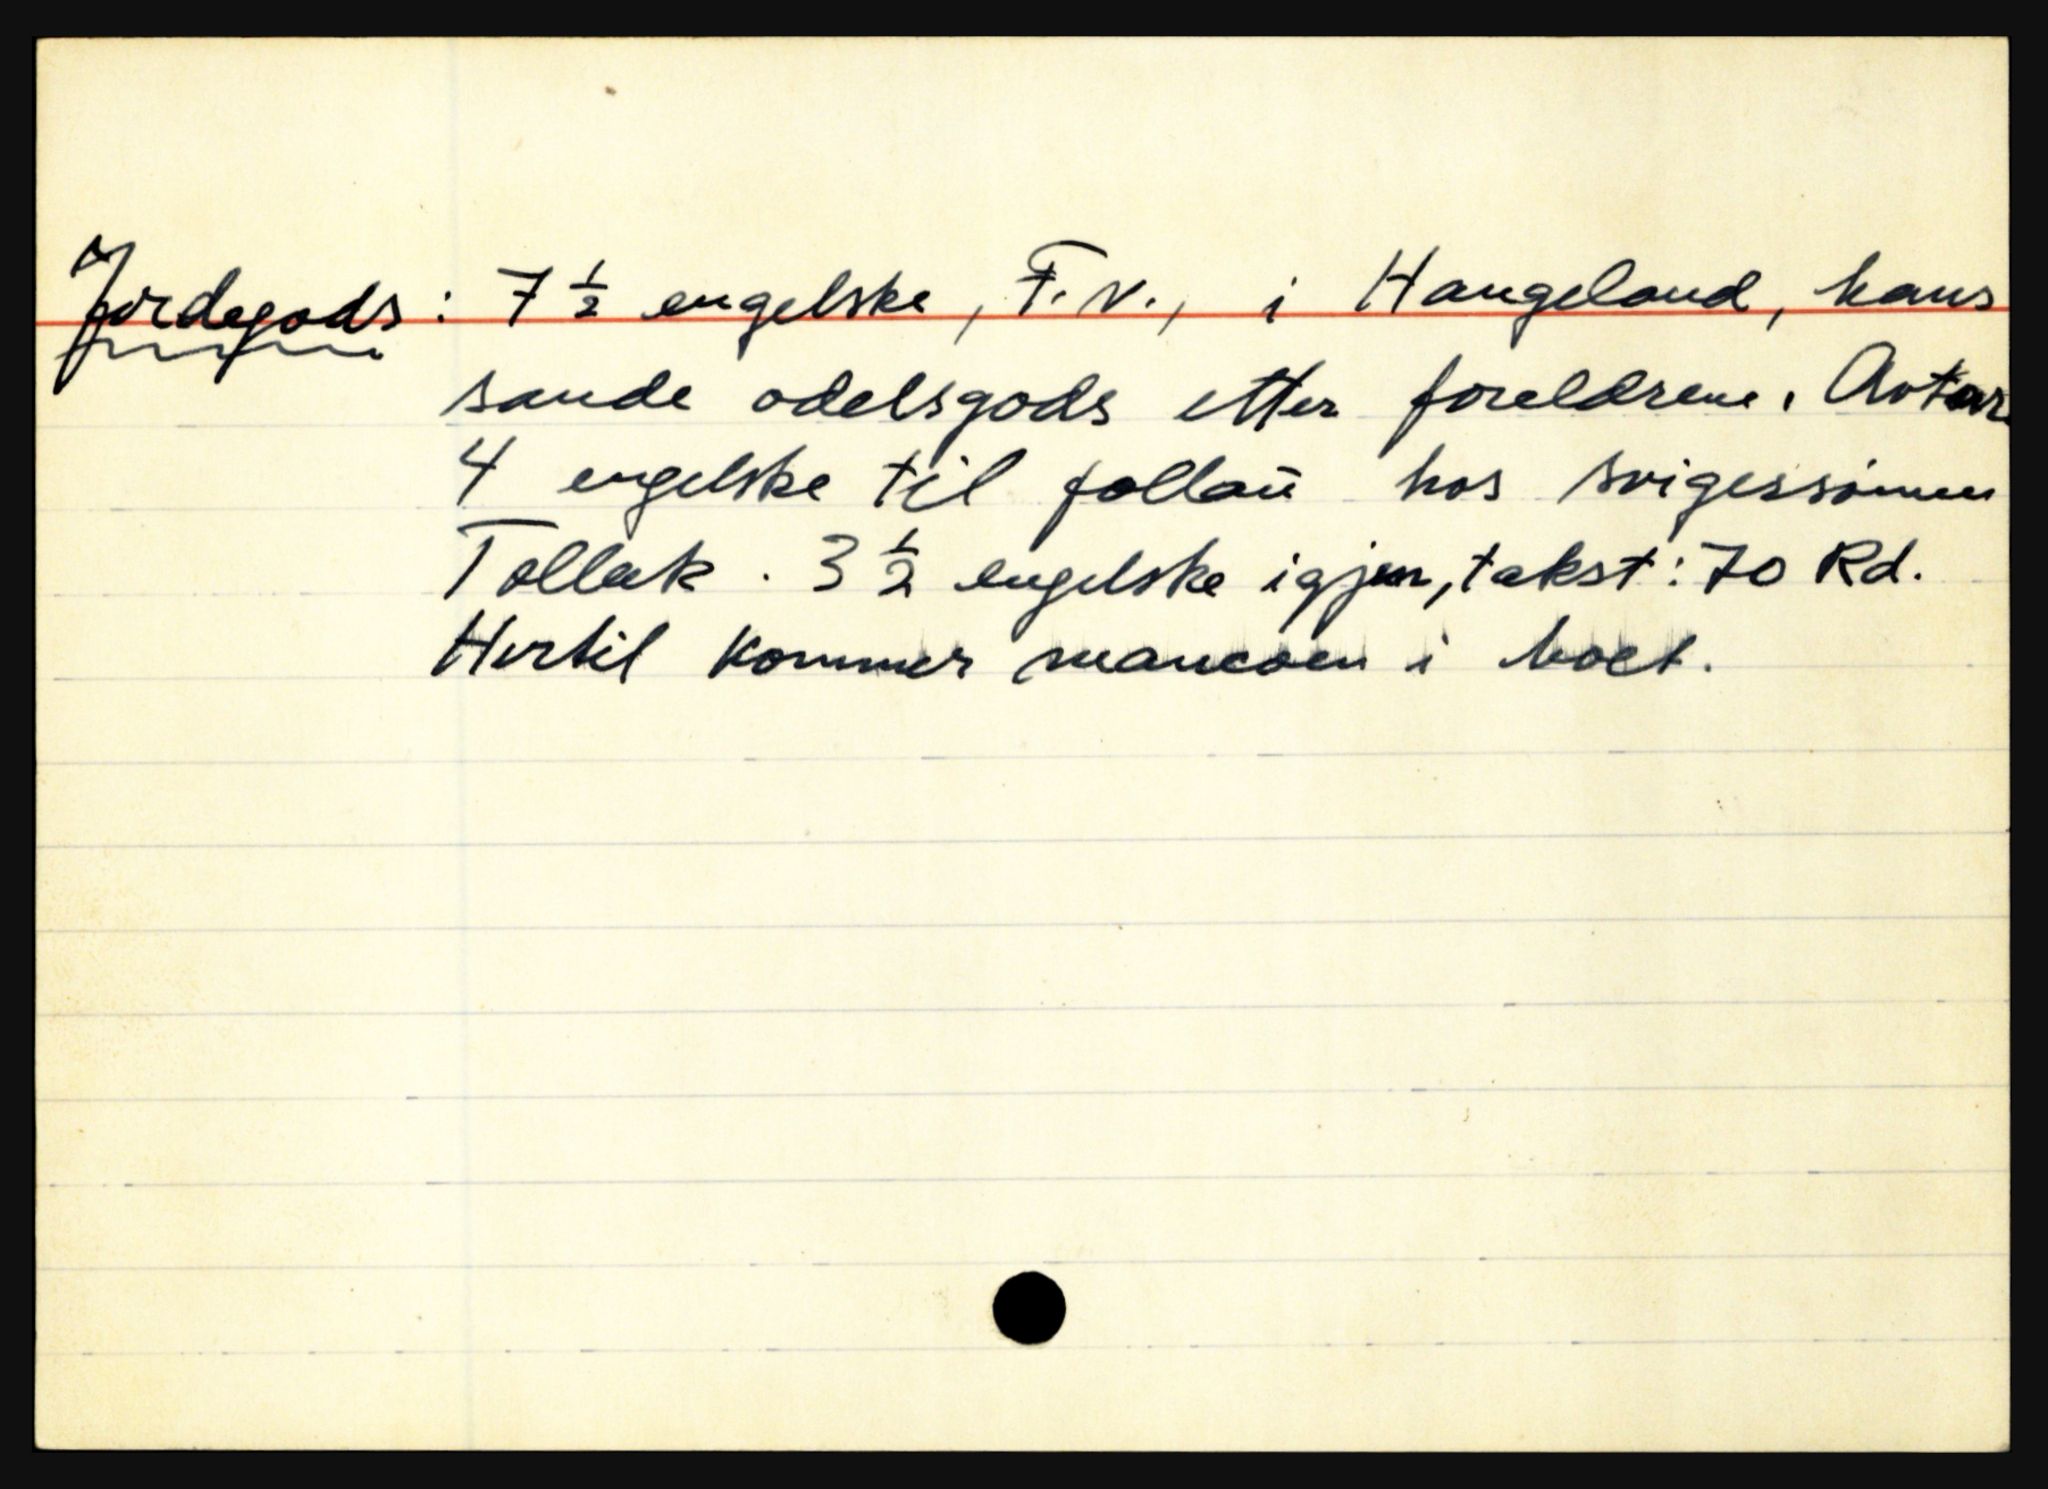 Jordegods: 7 ½ engelske, F.V., i Haugeland, hans
sande odelsgods etter foreldrene. Avtar
4 engelske til follaū hos svigessönnen
Tollak. 3 ½ engelske igjen, takst: 70 Rd.
Hertil kommer mancoen i boet.